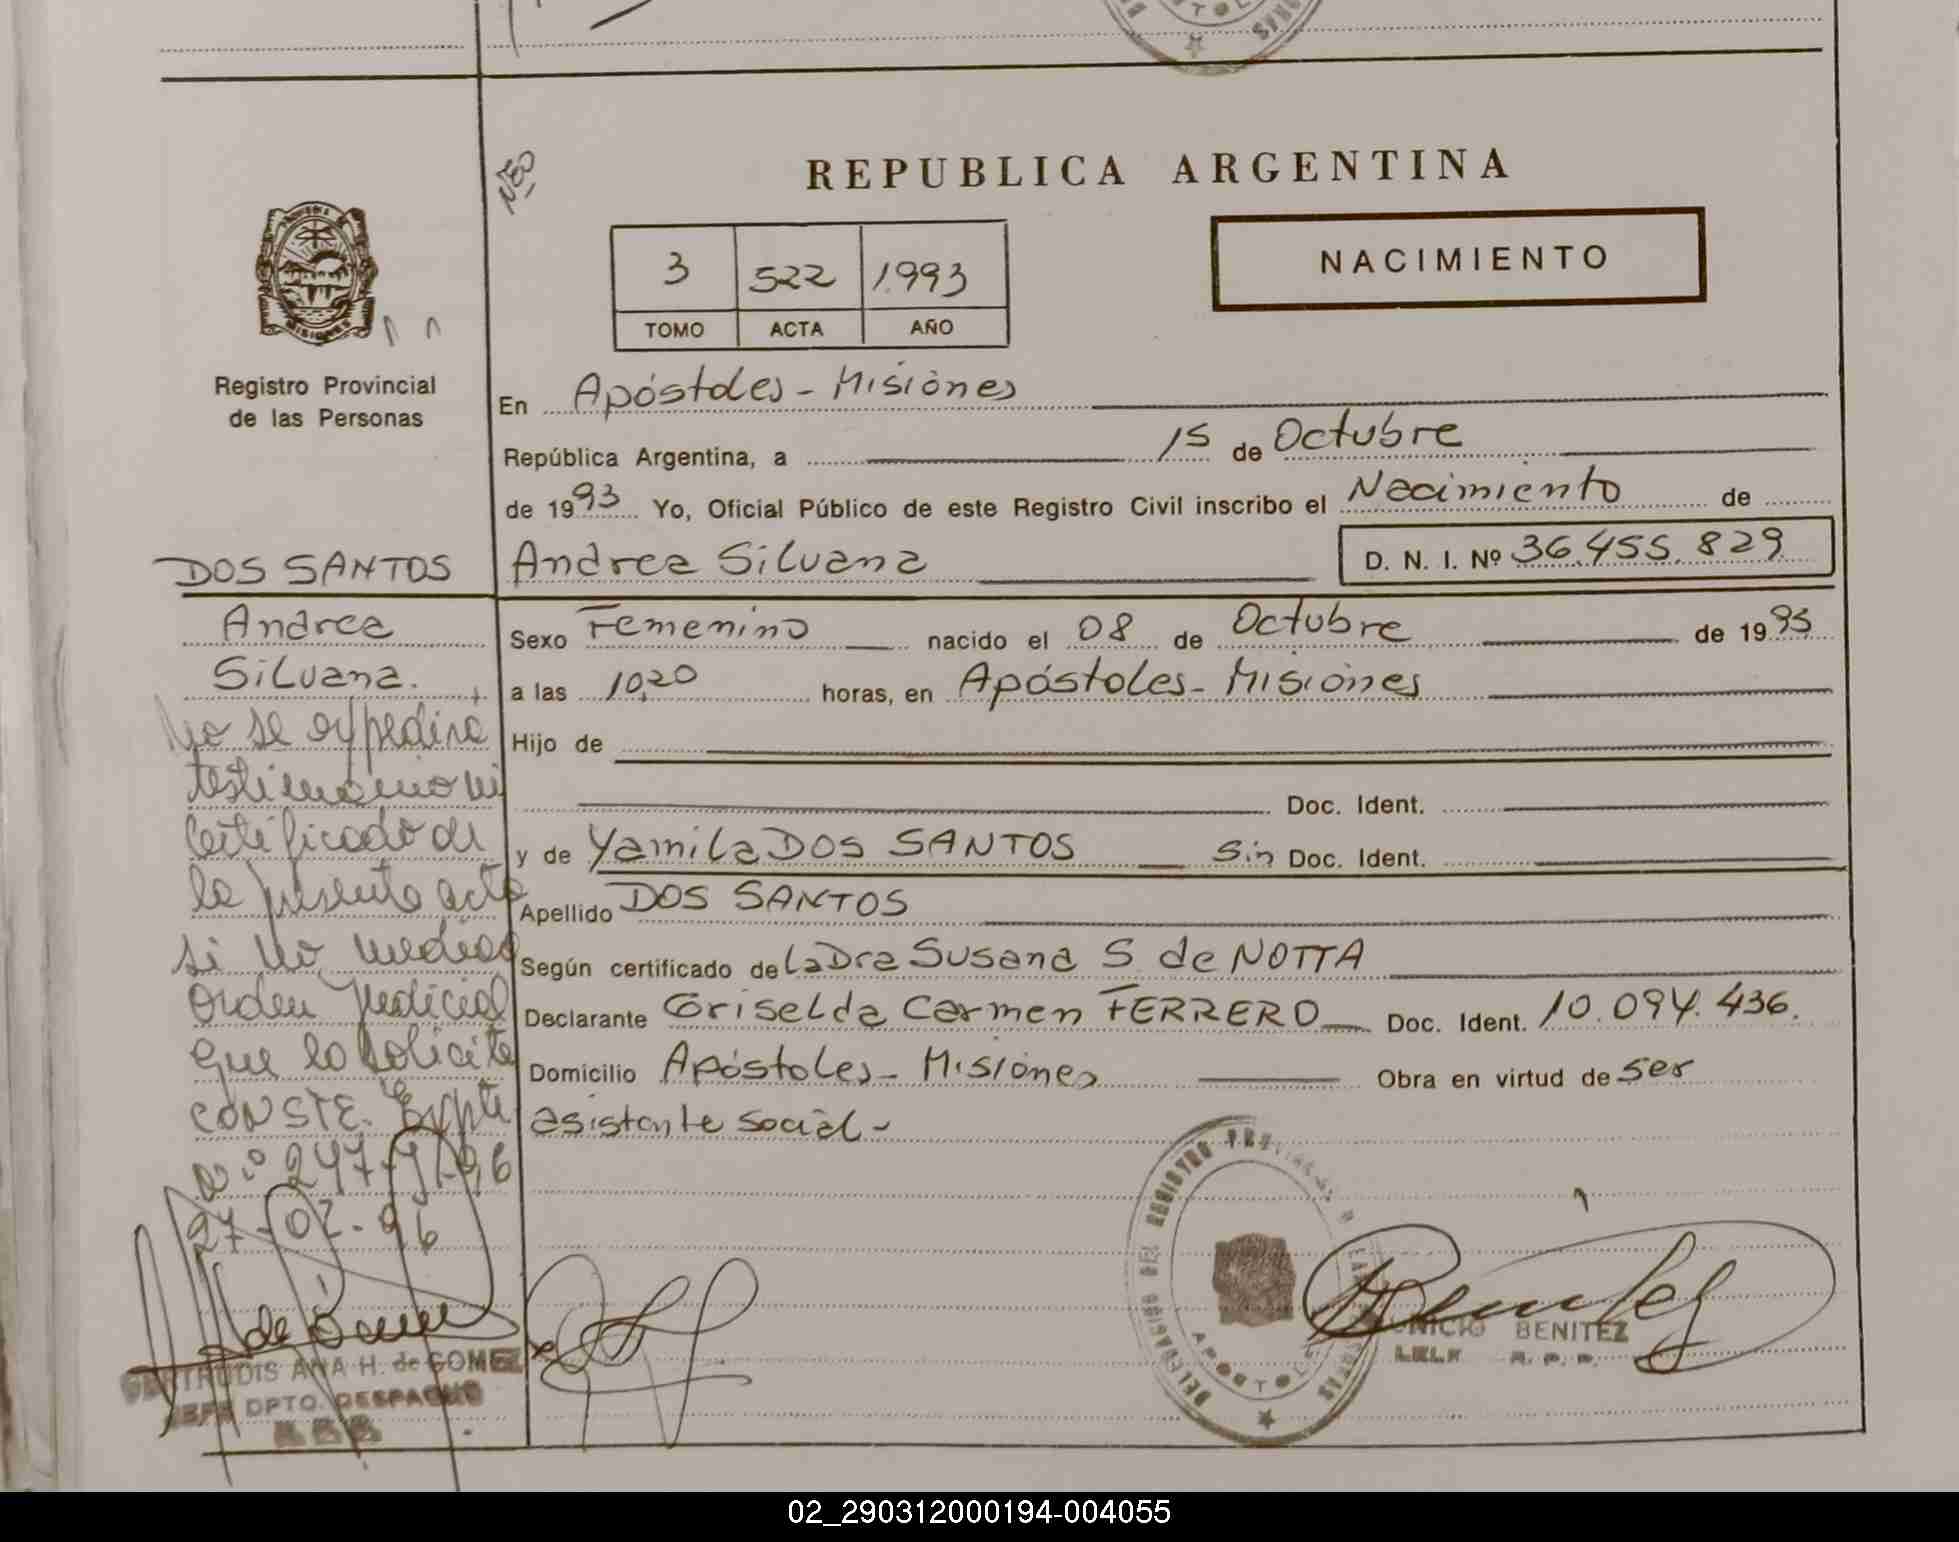 REPUBLICA ARGENTINA
NACIMIENTO
3 522 1.993
TOMO ACTA AÑO
MISIONES
Registro Provincial
de las Personas
En Apóstoles - Misiones
República Argentina, a 15 de Octubre
de 1993 Yo, Oficial Público de este Registro Civil inscribo el Nacimiento de
Andrea Silvana D. N. I. Nº 36.455.829
Sexo Femenino nacido el 08 de Octubre de 1993
a las 10,20 horas, en Apóstoles - Misiones
Hijo de
Doc. Ident.
y de Yamila DOS SANTOS Sin Doc. Ident.
Apellido DOS SANTOS
Según certificado de la Dra Susana S. de NOTTA
Declarante Griselda Carmen FERRERO Doc. Ident. 10.094.436.
Domicilio Apóstoles - Misiones Obra en virtud de ser
asistente social -
DOS SANTOS
Andrea
Silvana.
No se expedira
testimonio ni
Certificado de
la presente acta
si no media
Orden Judicial
que lo solicite
CONSTE. Expte
Nº 247-
27-02-96
GERTRUDIS ANA H. de GOMEZ
JEFE DPTO. DESPACHO
DELEGACION DEL REGISTRO PROVINCIAL DE LAS PERSONAS
APOSTOLES
BENITEZ
02_290312000194-004055